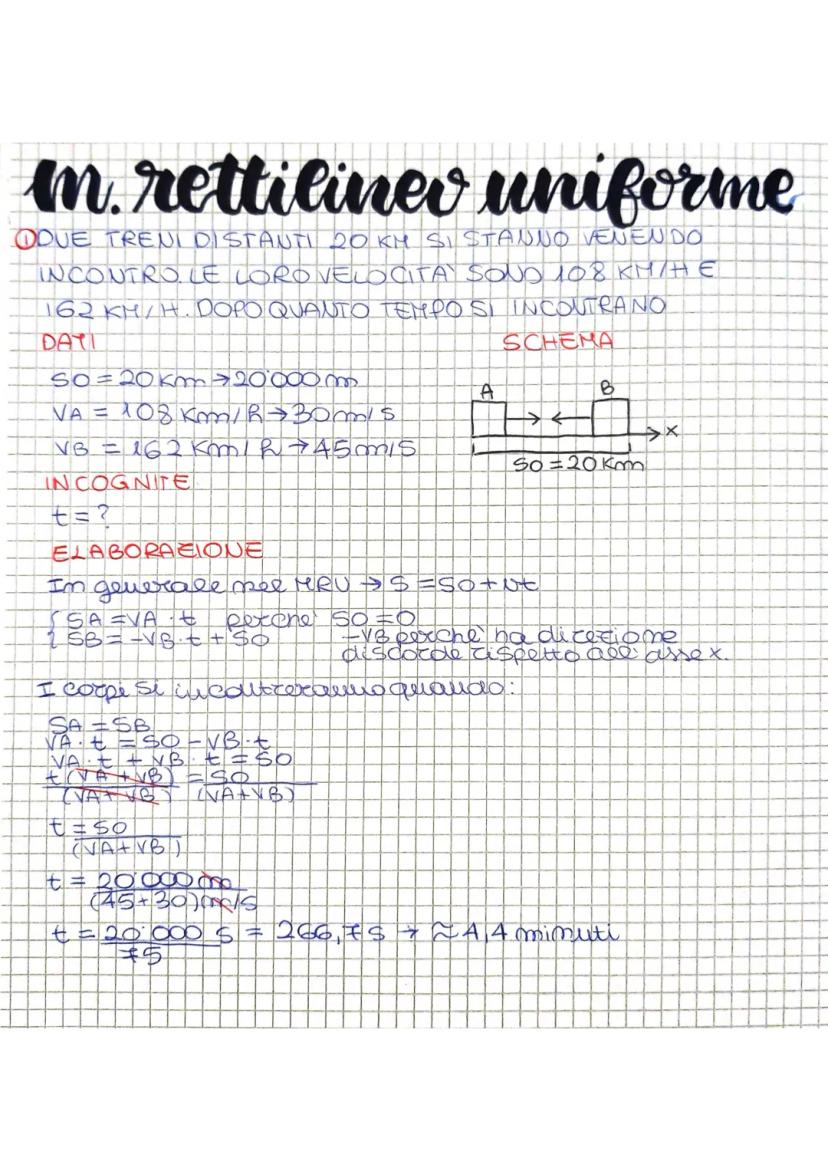 m. rettilineo uniforme
① DUE TRENI DISTANTI 20 KM SI STANNO VENENDO
INCONTRO. LE LORO VELOCITA' SONO 108 KM/H E
162 KM/H. DOPO QUANTO TEMPO SI INCONTRANO
DATI
SCHEMA
S0 = 20 Km → 20'000 m
VA = 108 Km/h → 30 m/s
VB = 162 Km/h → 45 m/s
A B
x
S0 = 20 Km
INCOGNITE
t = ?
ELABORAZIONE
In generale nel MRU → S = S0 + vt
{ SA = VA · t perche' S0 = 0
SB = -VB · t + S0 -VB perche' ha direzione
discorde rispetto all'asse x.
I corpi si incontreranno quando:
SA = SB
VA · t = S0 - VB · t
VA · t + VB · t = S0
t (VA + VB) = S0
(VA + VB) (VA + VB)
t = S0
(VA + VB)
t = 20'000 m
(45 + 30) m/s
t = 20'000 s = 266,7 s → ≈ 4,4 minuti
75